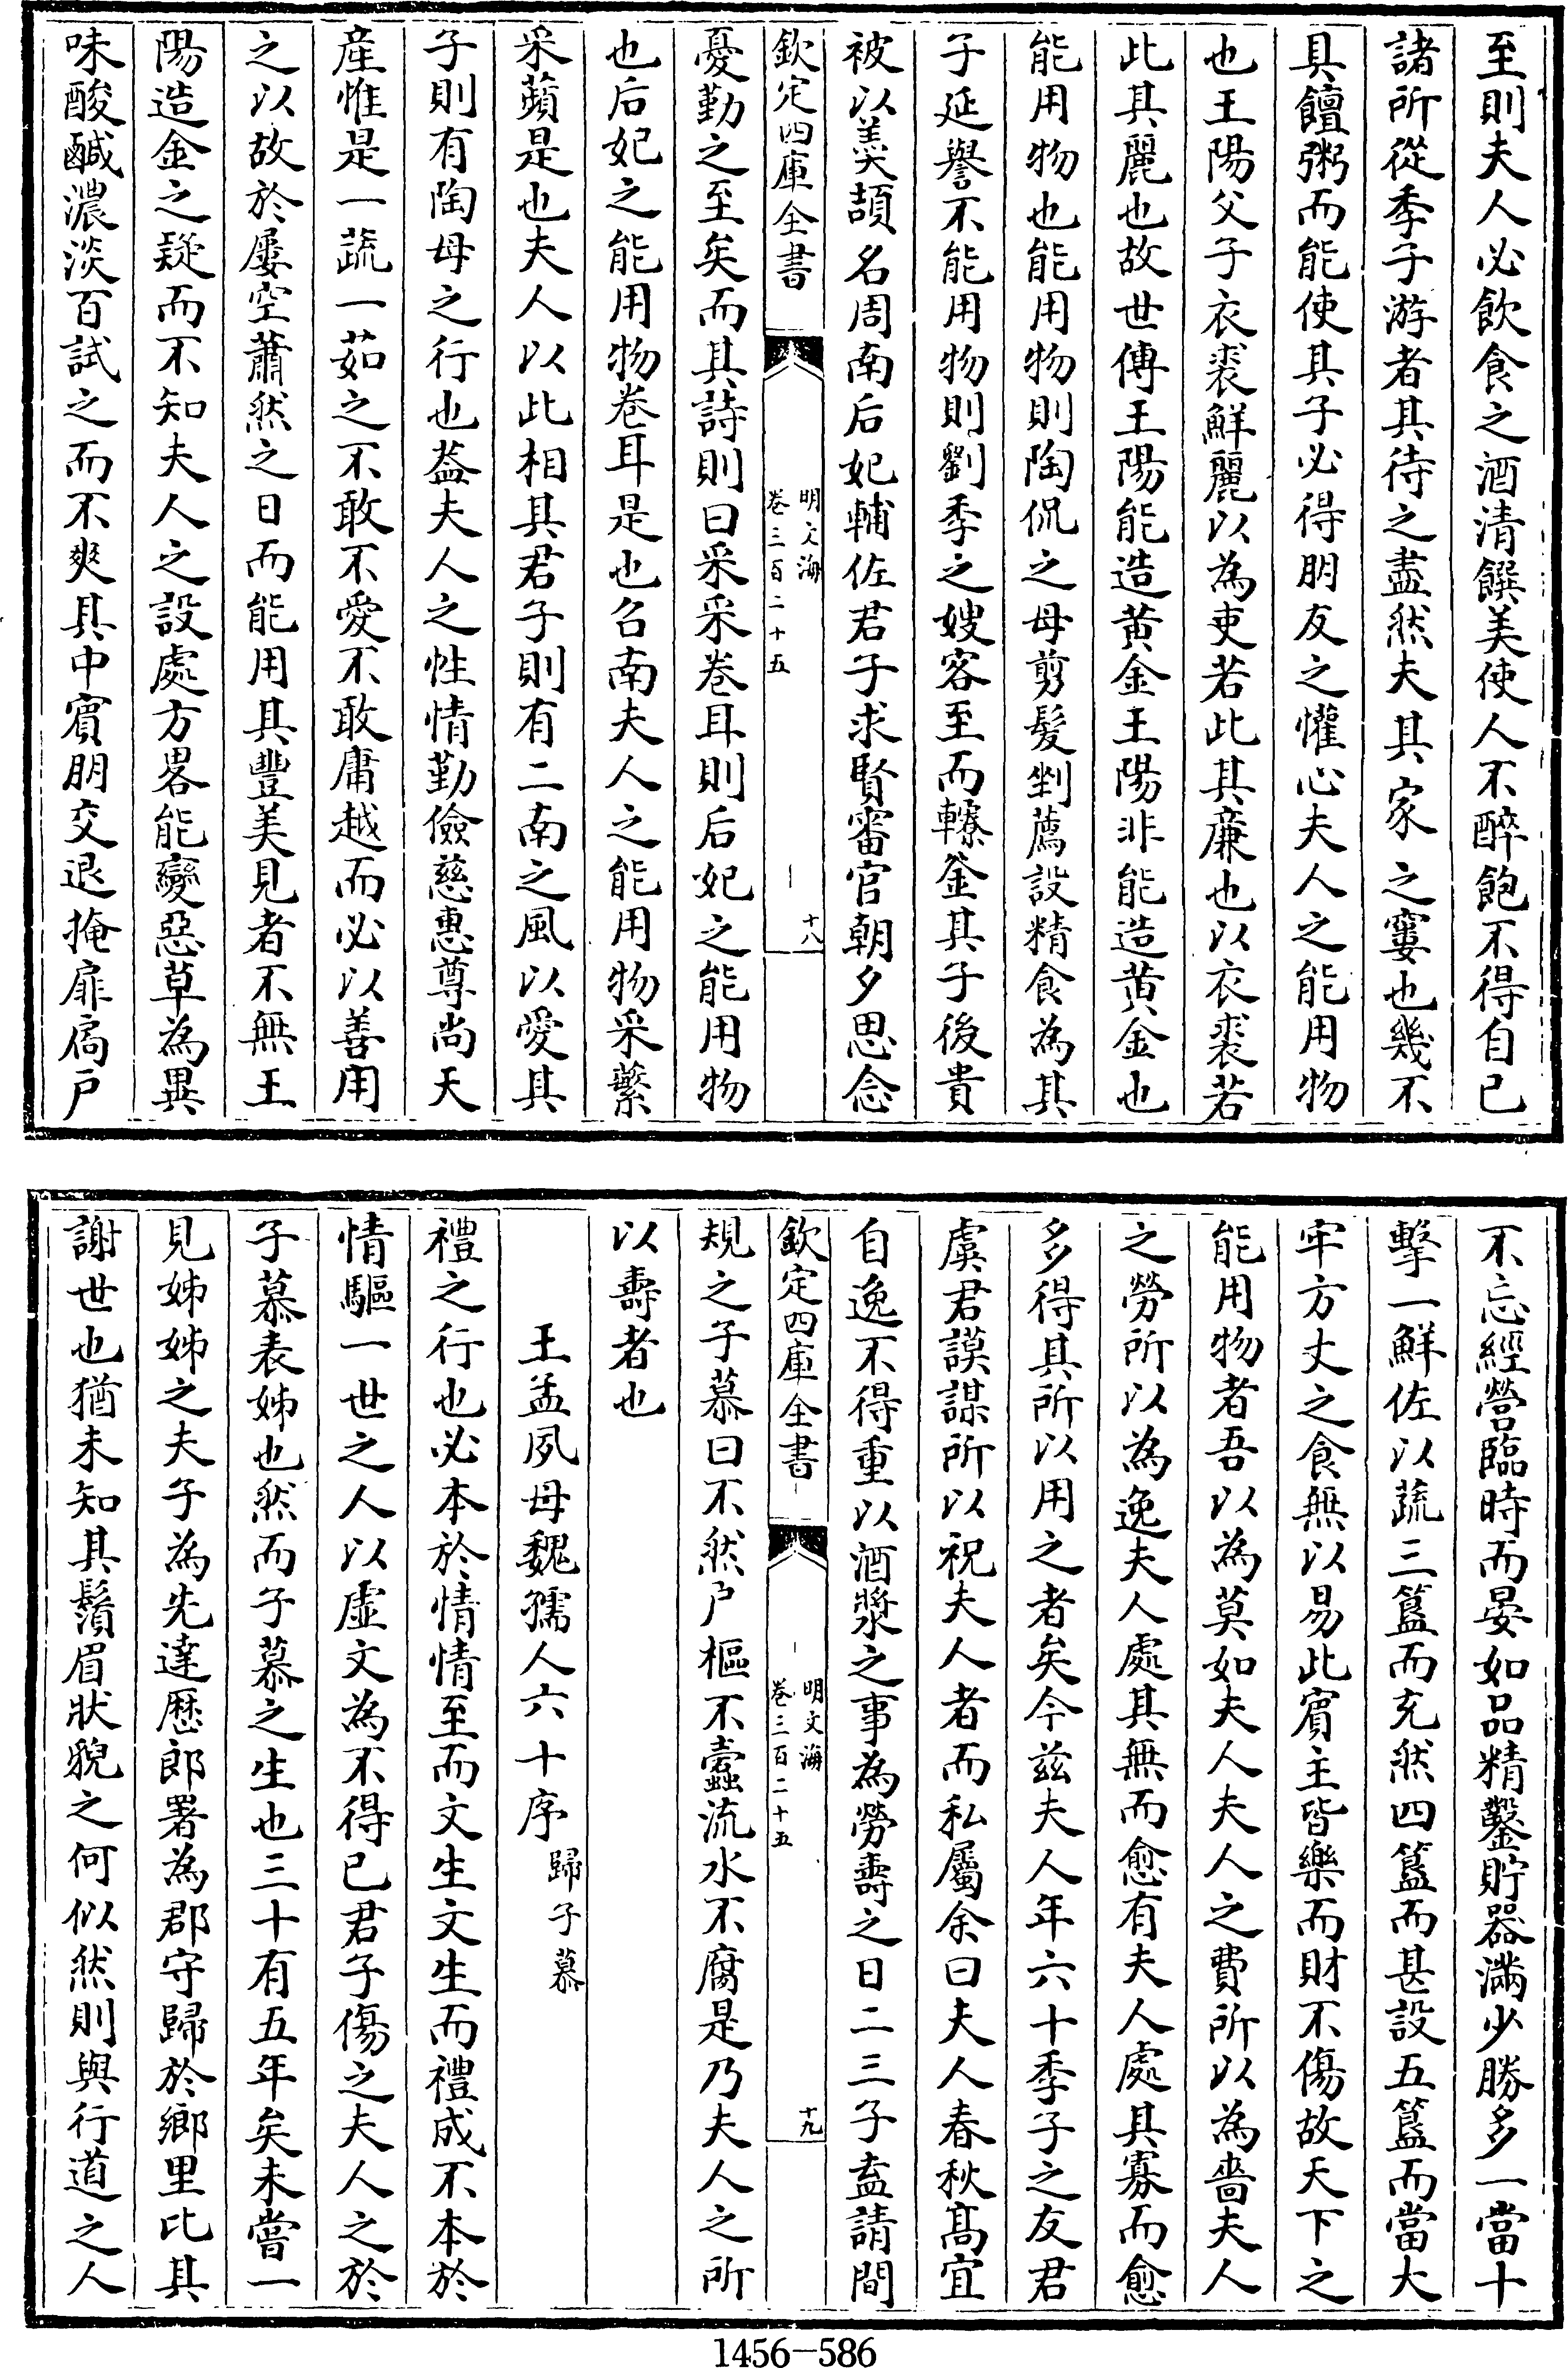 至則夫人必飲食之酒清饌美使人不醉飽不得自已
諸所從季子游者其待之盡然夫其家之窶也幾不
具饘粥而能使其子必得朋友之懽心夫人之能用物
也王陽父子衣裘鮮麗以為吏若此其廉也以衣裘若
此其麗也故世傳王陽能造黄金王陽非能造黄金也
能用物也能用物則陶侃之母剪髮剉薦設精食為其
子延譽不能用物則劉季之嫂客至而轑釜其子後貴
被以羮頡名周南后妃輔佐君子求賢審官朝夕思念
欽定四庫全書
明文海
卷三百二十五
十八
憂勤之至矣而其詩則曰采采卷耳則后妃之能用物
也后妃之能用物卷耳是也召南夫人之能用物采蘩
采蘋是也夫人以此相其君子則有二南之風以愛其
子則有陶母之行也葢夫人之性情勤儉慈惠尊尚天
產惟是一蔬一茹之不敢不愛不敢庸越而必以善用
之以故於屢空蕭然之日而能用其豐美見者不無王
陽造金之疑而不知夫人之設處方畧能變惡草為異
味酸鹹濃淡百試之而不爽其中賔朋交退掩扉扃戶
不忘經營臨時而晏如品精鑿貯器滿少勝多一當十
擊一鮮佐以蔬三簋而充然四簋而甚設五簋而當大
牢方丈之食無以易此賔主皆樂而財不傷故天下之
能用物者吾以為莫如夫人夫人之費所以為嗇夫人
之勞所以為逸夫人處其無而愈有夫人處其寡而愈
多得其所以用之者矣今兹夫人年六十季子之友君
虞君謨謀所以祝夫人者而私屬余曰夫人春秋髙宜
自逸不得重以酒漿之事為勞壽之日二三子盍請間
欽定四庫全書
明文海
卷三百二十五
十九
規之子慕曰不然户樞不蠹流水不腐是乃夫人之所
以壽者也
王孟夙母魏孺人六十序 歸子慕
禮之行也必本於情情至而文生文生而禮成不本於
情驅一世之人以虛文為不得已君子傷之夫人之於
子慕表姊也然而子慕之生也三十有五年矣未嘗一
見姊姊之夫子為先達歴郎署為郡守歸於鄉里比其
謝世也猶未知其鬚眉狀貌之何似然則與行道之人
1456-586